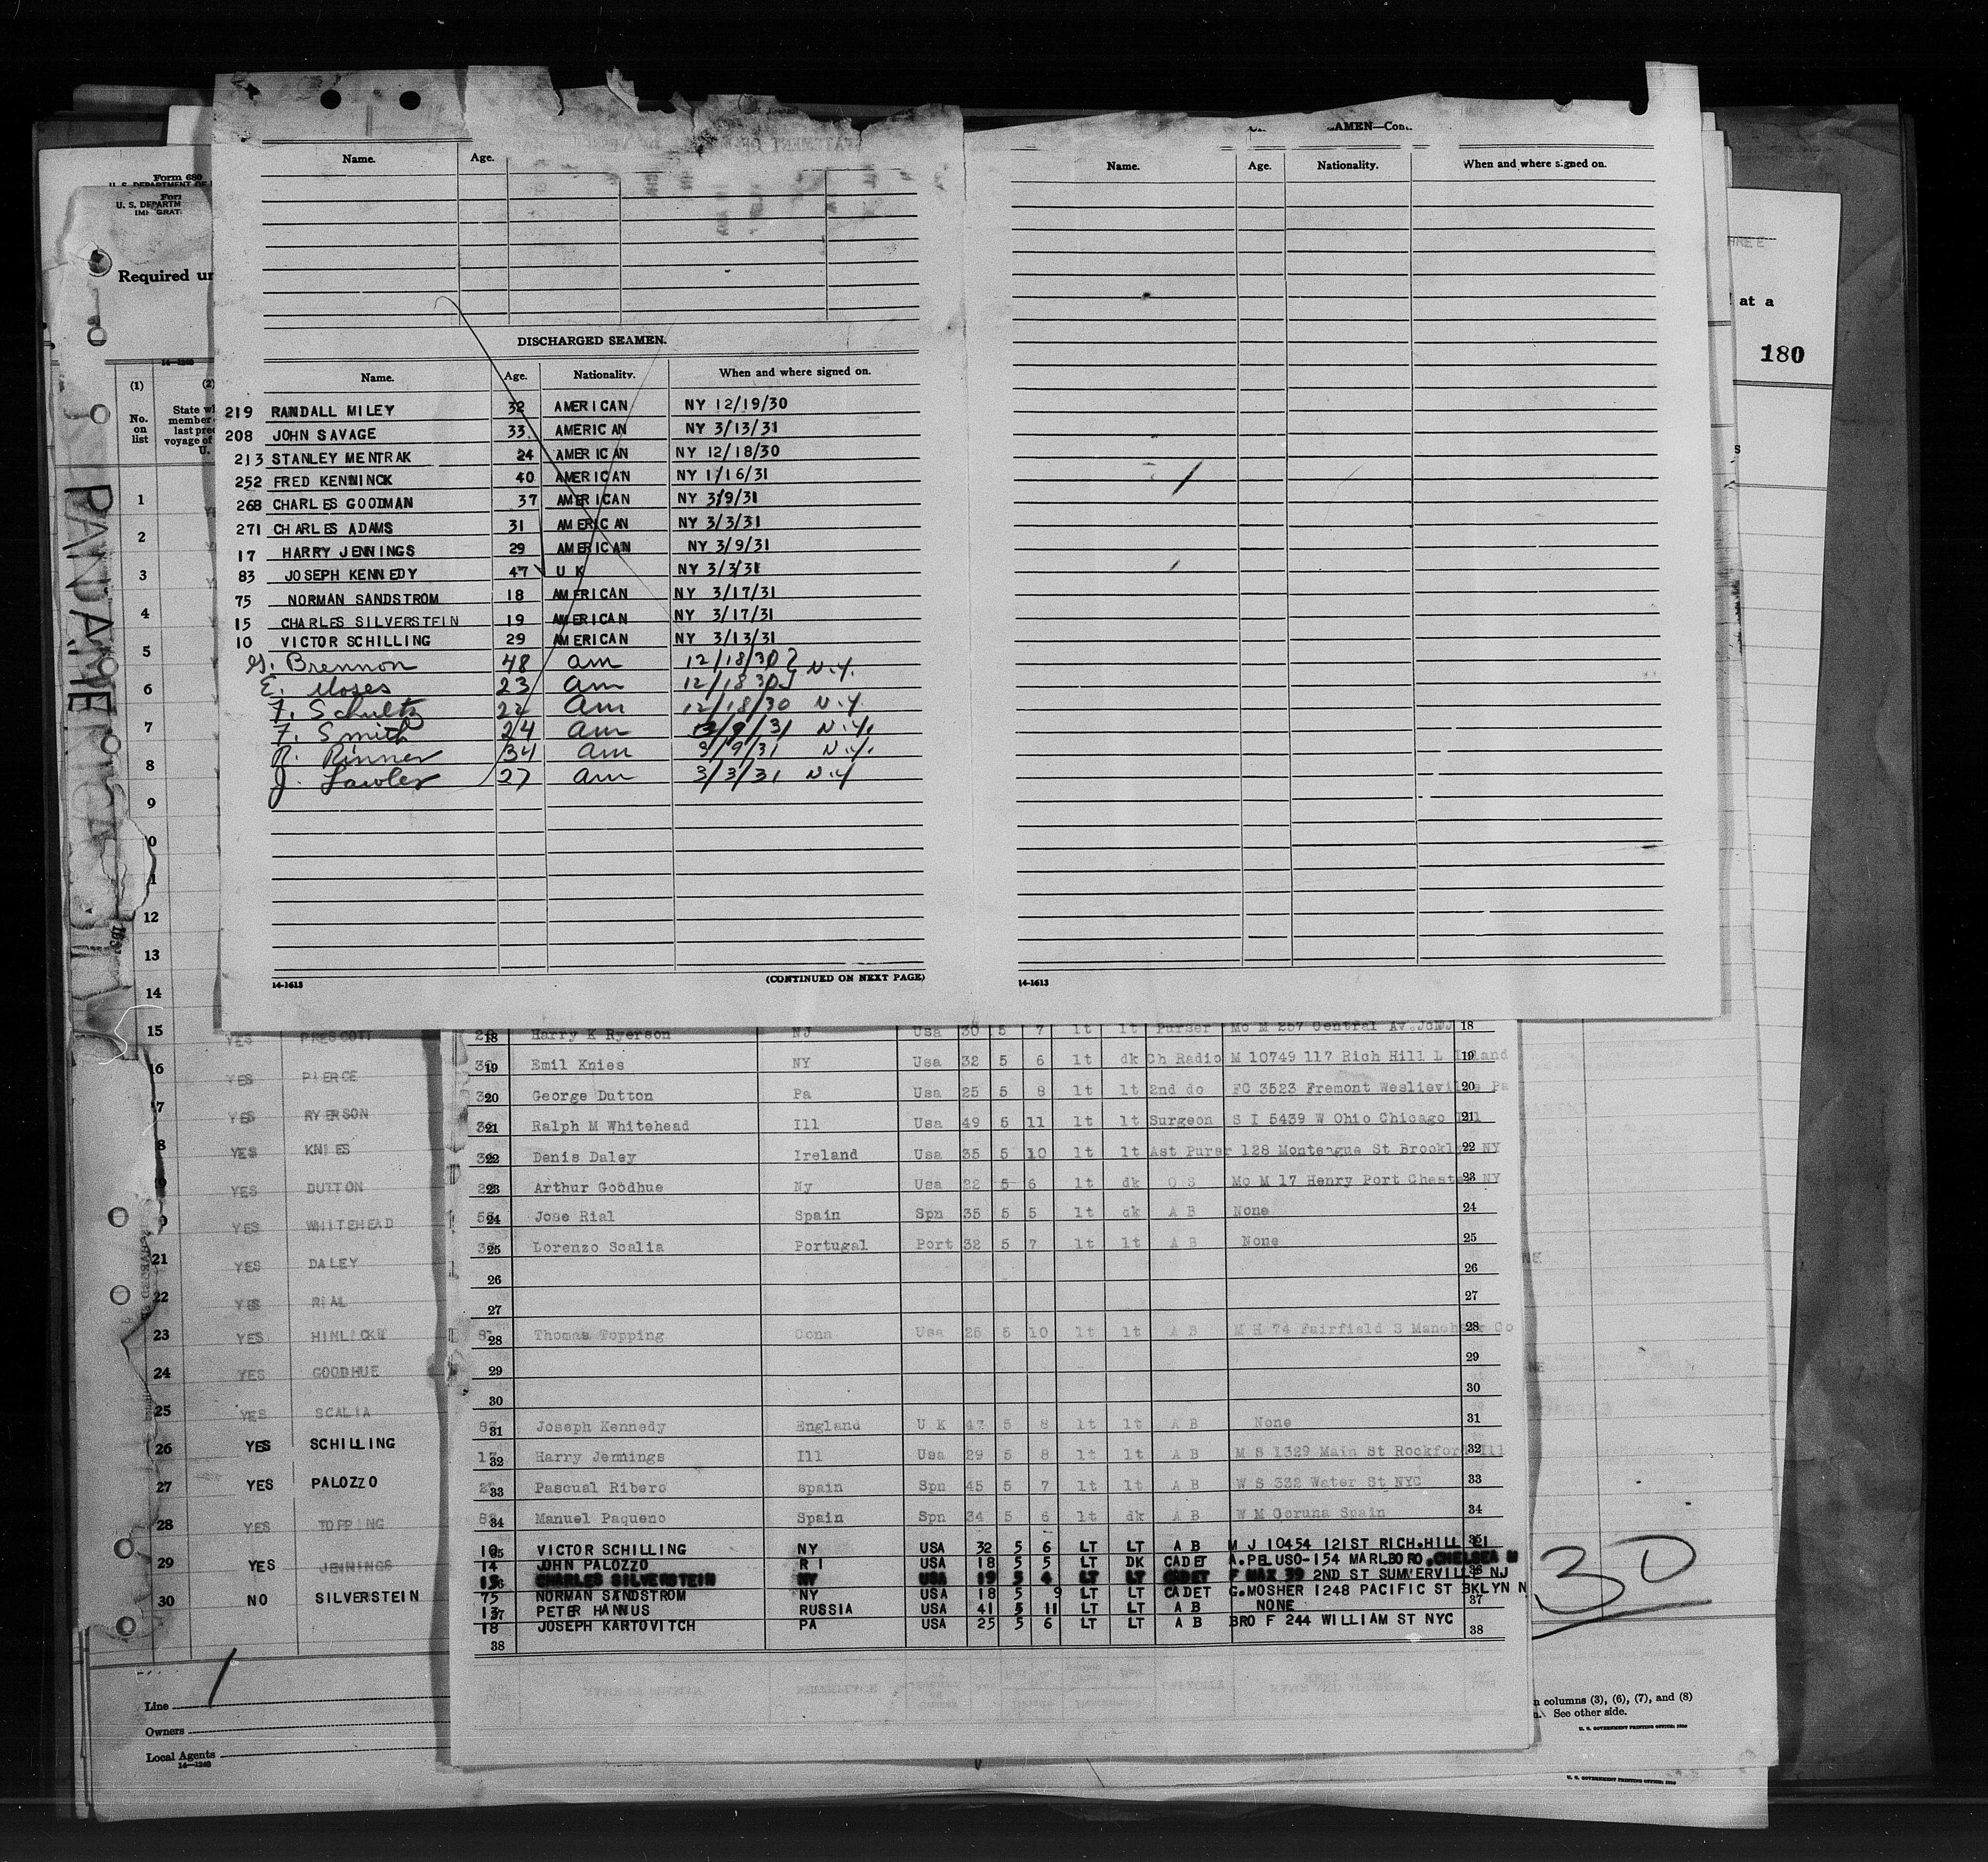 AMEN—Cont.
Name. Age.
Name. Age. Nationality. When and where signed on.
DISCHARGED SEAMEN.
Name. Age. Nationality. When and where signed on.
219 RANDALL MILEY 32 AMERICAN NY 12/19/30
208 JOHN SAVAGE 33 AMERICAN NY 3/13/31
213 STANLEY MENTRAK 24 AMERICAN NY 12/18/30
252 FRED KENNINCK 40 AMERICAN NY 1/16/31
268 CHARLES GOODMAN 37 AMERICAN NY 3/9/31
271 CHARLES ADAMS 31 AMERICAN NY 3/3/31
17 HARRY JENNINGS 29 AMERICAN NY 3/9/31
83 JOSEPH KENNEDY 47 U K NY 3/3/31
75 NORMAN SANDSTROM 18 AMERICAN NY 3/17/31
15 CHARLES SILVERSTEIN 19 AMERICAN NY 3/17/31
10 VICTOR SCHILLING 29 AMERICAN NY 3/13/31
G. Brennon 48 am 12/18/30 N.Y.
E. Moses 23 am 12/18 30
F. Schultz 22 am 12/18/30 N.Y.
F. Smith 24 am 3/9/31 N.Y.
R. Rinner 34 am 3/9/31 N.Y.
J. Lawler 27 am 3/3/31 N.Y
(CONTINUED ON NEXT PAGE)
14-1613
14-1613
Form 680
U. S. DEPARTMENT OF
U. S. DEPARTM
Required un
at a
180
(1)
No. on list
1
2
3
4
5
6
7
8
9
12
13
14
15 YES PRESCOTT
16 YES PIERCE
YES RYERSON
YES KNIES
YES DUTTON
YES WHITEHEAD
21 YES DALEY
22 YES RIAL
23 YES HIMLICKH
24 YES GOODHUE
25 YES SCALIA
26 YES SCHILLING
27 YES PALOZZO
28 YES TOPPING
29 YES JENNINGS
30 NO SILVERSTEIN
Line
Owners
Local Agents
14—1240
18 Harry K Ryerson NJ Usa 30 5 7 lt lt Purser Mo M 257 Central Av. JcNJ 18
19 Emil Knies NY Usa 32 5 6 lt dk Ch Radio M 10749 117 Rich Hill L Island 19
20 George Dutton Pa Usa 25 5 8 lt lt 2nd do FC 3523 Fremont Weslieville Pa 20
21 Ralph M Whitehead Ill Usa 49 5 11 lt lt Surgeon S I 5439 W Ohio Chicago Ill 21
22 Denis Daley Ireland Usa 35 5 10 lt lt Ast Pursr 128 Montengue St Brookly NY 22
23 Arthur Goodhue Ny Usa 22 5 6 lt dk O S Mo M 17 Henry Port Cheste NY 23
24 Jose Rial Spain Spn 35 5 5 lt dk A B None 24
25 Lorenzo Scalia Portugal Port 32 5 7 lt lt A B None 25
26 26
27 27
28 Thomas Topping Conn Usa 25 5 10 lt lt A B M H 74 Fairfield S Manchester Co 28
29 29
30 30
31 Joseph Kennedy England U K 47 5 8 lt lt A B None 31
32 Harry Jennings Ill Usa 29 5 8 lt lt A B M S 1329 Main St Rockford Ill 32
33 Pascual Ribero spain Spn 45 5 7 lt lt A B W S 332 Water St NYC 33
34 Manuel Paqueno Spain Spn 34 5 6 lt dk A B W M Coruna Spain 34
10 VICTOR SCHILLING NY USA 32 5 6 LT LT A B M J 10454 121ST RICH.HILL LI 35
14 JOHN PALOZZO R I USA 18 5 5 LT DK CADET A.PELUSO-154 MARLBORO.CHELSEA M
15 CHARLES SILVERSTEIN NY USA 19 5 4 LT LT CADET F MAX 39 2ND ST SUMVERVILLE NJ 36
75 NORMAN SANDSTROM NY USA 18 5 9 LT LT CADET G.MOSHER 1248 PACIFIC ST BKLYN N
37 PETER HANNUS RUSSIA USA 41 5 11 LT LT A B NONE 37
18 JOSEPH KARTOVITCH PA USA 25 5 6 LT LT A B BRO F 244 WILLIAM ST NYC
38 38
30
n columns (3), (6), (7), and (8)
See other side.
U. S. GOVERNMENT PRINTING OFFICE: 1930